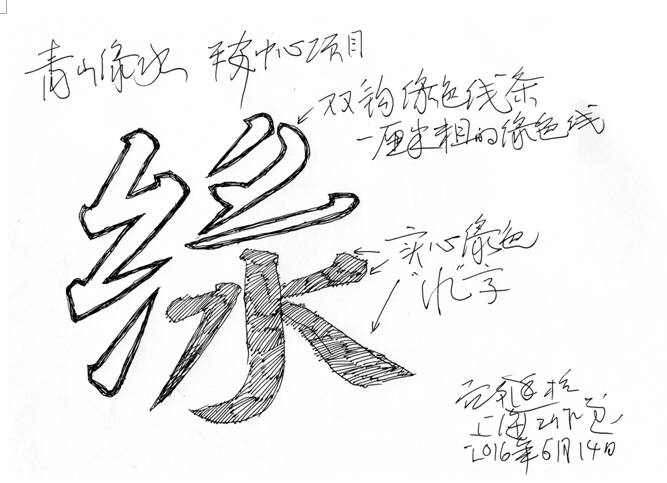 青山绿水 平安中心项目
双钩绿色线条
一厘米粗的绿色线
绿
实心绿色
"水"字
上海
2016年6月14日